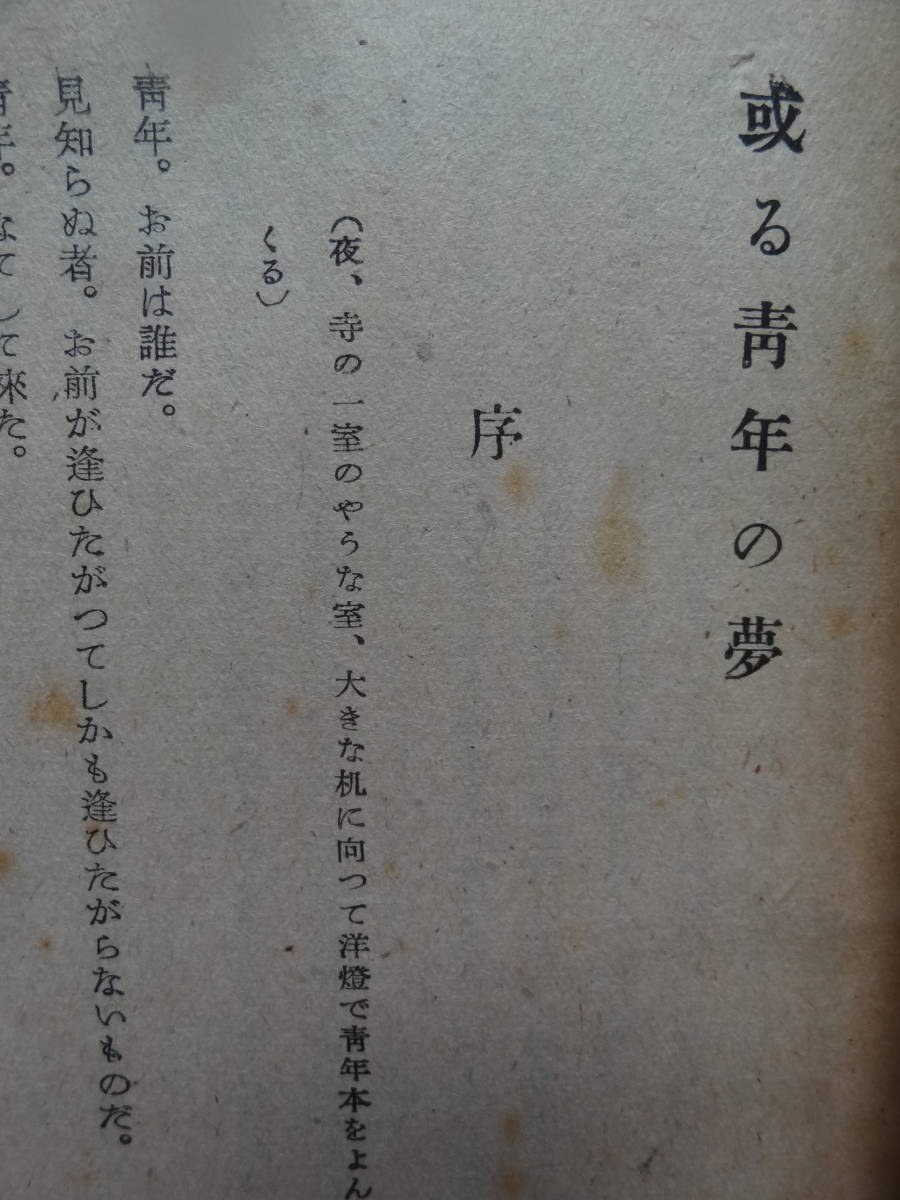 或る靑年の夢
序
(夜、寺の一室のやうな室、大きな机に向つて洋燈で靑年本をよん
くる)
靑年。お前は誰だ。
見知らぬ者。お前が逢ひたがつてしかも逢ひたがらないものだ。
靑年。して來た。